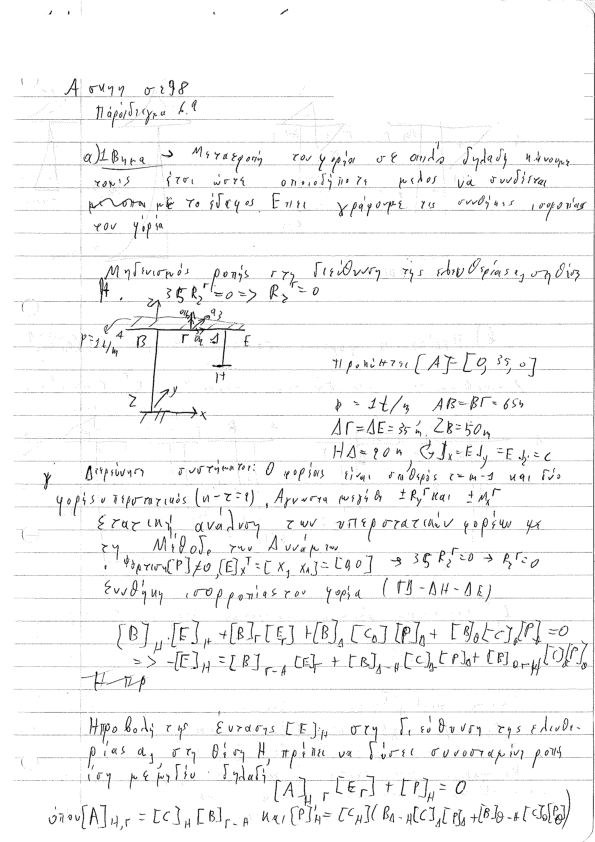 Άσκηση σελ 98
Παράδειγμα 6.9
α) 1 Βημα → Μετατροπή του φορέα σε απλό δηλαδή κάνουμε
τομές έτσι ώστε οποιοδήποτε μέλος να συνδέεται
με το έδαφος. Επει γράφουμε τις συνθήκες ισορροπίας
του φορέα
Μηδενισμός ροπής στη διεύθυνση της ελευθερίας a, στη θέση
H. 35 R₂^Γ = 0 => R₂^Γ = 0
Z
a₃
P=1t/m
A
B Γ a₂ Δ E
H
Z y
x
Προκύπτει [A]=[0, 35, 0]
P = 1t/m AB=BΓ=65m
ΔΓ=ΔE=35m, ZB=50m
HΔ=20m GJx=EJy=EJz=c
γ Διερεύνηση συστήματος: Ο φορέας είναι σταθερός τ=m-1 και δύο
φορές υπερστατικός (n-τ=1), Άγνωστα μεγέθη ± Ry^Γ και ± Mx^Γ
Στατική ανάλυση των υπερστατικών φορέων με
τη Μέθοδο των Δυνάμεων
Φόρτιση [P]≠0, [E]x^T=[X₁ X₂]=[0,0] → 35 R₂^Γ=0 → R₂^Γ=0
Συνθήκη ισορροπίας του φορέα (ΓΒ-ΔΗ-ΔΕ)
[B]H·[E]H+[B]Γ[EΓ]+[B]Δ[CΔ][P]Δ+[B]Θ[C]Θ[P]Θ=0
=> -[E]H=[B]Γ-Η[E]Γ + [B]Δ-Η[C]Δ[P]Δ+[B]Θ-Η[C]Θ[P]Θ
Η πρ
Η προβολή της έντασης [E]H στη διεύθυνση της ελευθε-
ρίας a, στη θέση Η, πρέπει να δώσει συνισταμένη ροπή
ίση με μηδέν δηλαδή
[A]H,Γ [EΓ] + [P]H = 0
όπου [A]H,Γ = [C]H [B]Γ-Η και [P]H = [CH]([B]Δ-Η[C]Δ[P]Δ+[B]Θ-Η[C]Θ[P]Θ)